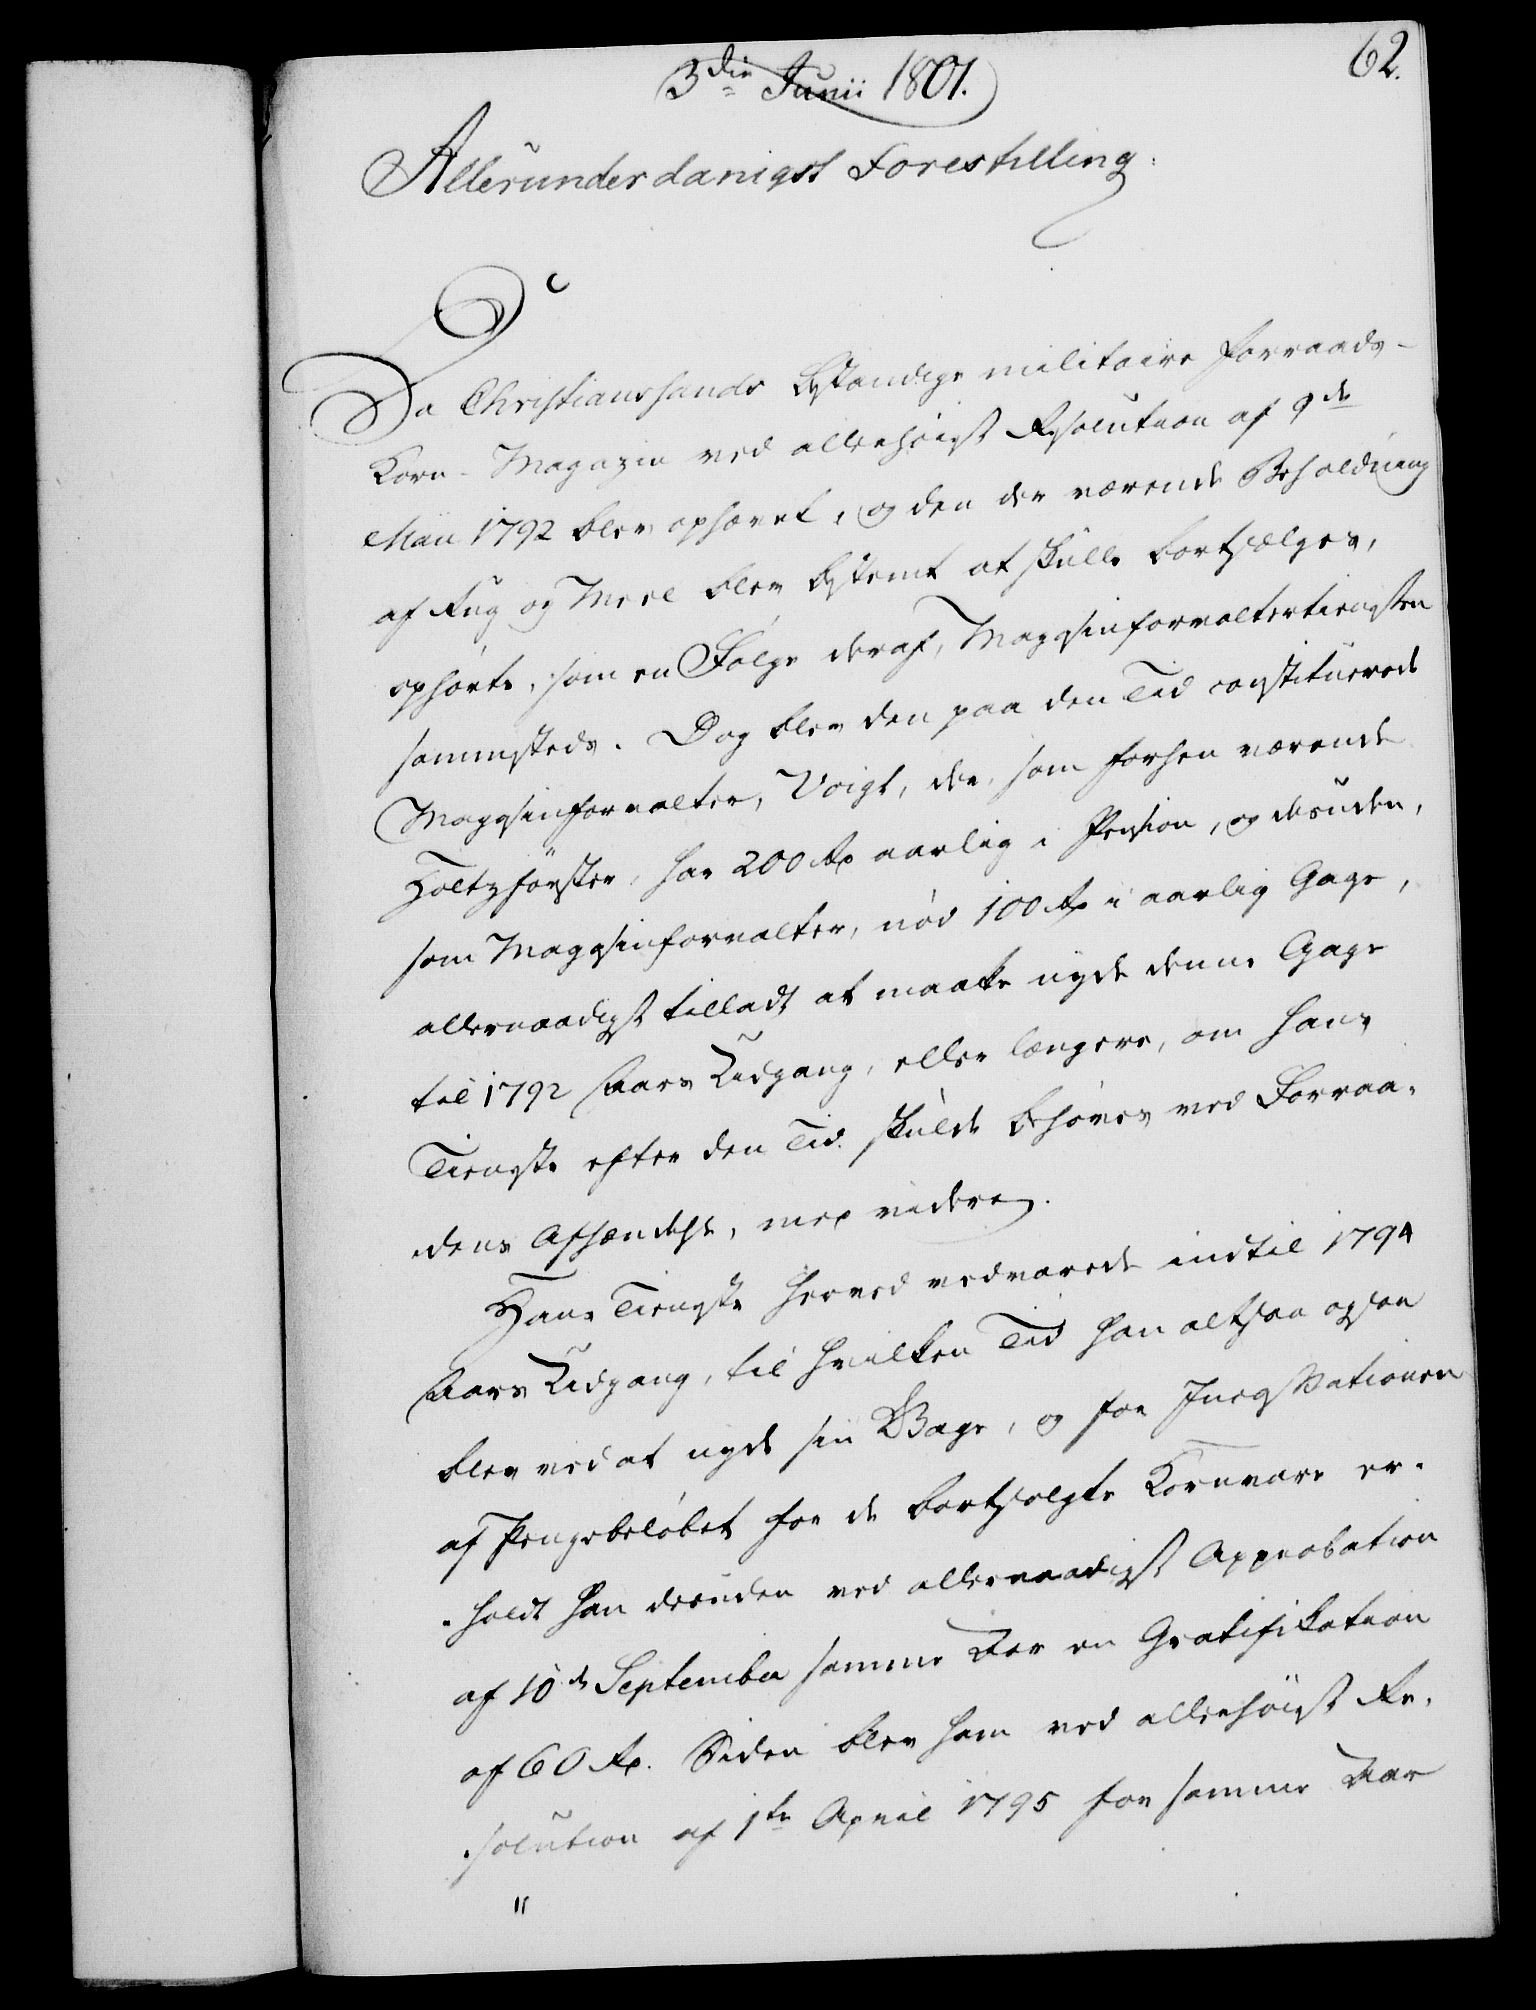 62.
3die Junii 1801.
Allerunderdanigst Forestilling.
Da Christianssands bestandige militaire Forraads-
Korn-Magazin ved allerhöiest Resolution af 9de
Maii 1792 blev ophævet, og den der værende Beholdning
af Rug og Meel blev bestemt at skulle bortsælges,
ophörte, som en Fölge deraf, Magasinforvaltertiensten
sammesteds. Dog blev den paa den Tid constituerede
Magasinforvalter, Voigt, der, som forhen værende
Holtzförster, har 200 Rd aarlig i Pension, og desuden,
som Magasinforvalter, nöd 100 Rd i aarlig Gage,
allernaadigst tilladt at maatte nyde denne Gage
til 1792 Aars Udgang, eller længere, om hans
Tieneste efter den Tid skulde behöves ved Forraa-
dens Afhændelse, med videre.
Hans Tieneste herved vedvarede indtil 1794
Aars Udgang, til hvilken Tid han altsaa ogsaa
blev ved at nyde sin Gage, og for Incassationen
af Pengebelöbet for de bortsolgte Kornvare er-
holdt han desuden ved allernaadigst Approbation
af 10de September samme Aar en Gratifikation
af 60 Rd. Siden blev ham ved allerhöiest Re-
solution af 1te April 1795 for samme Aar
"